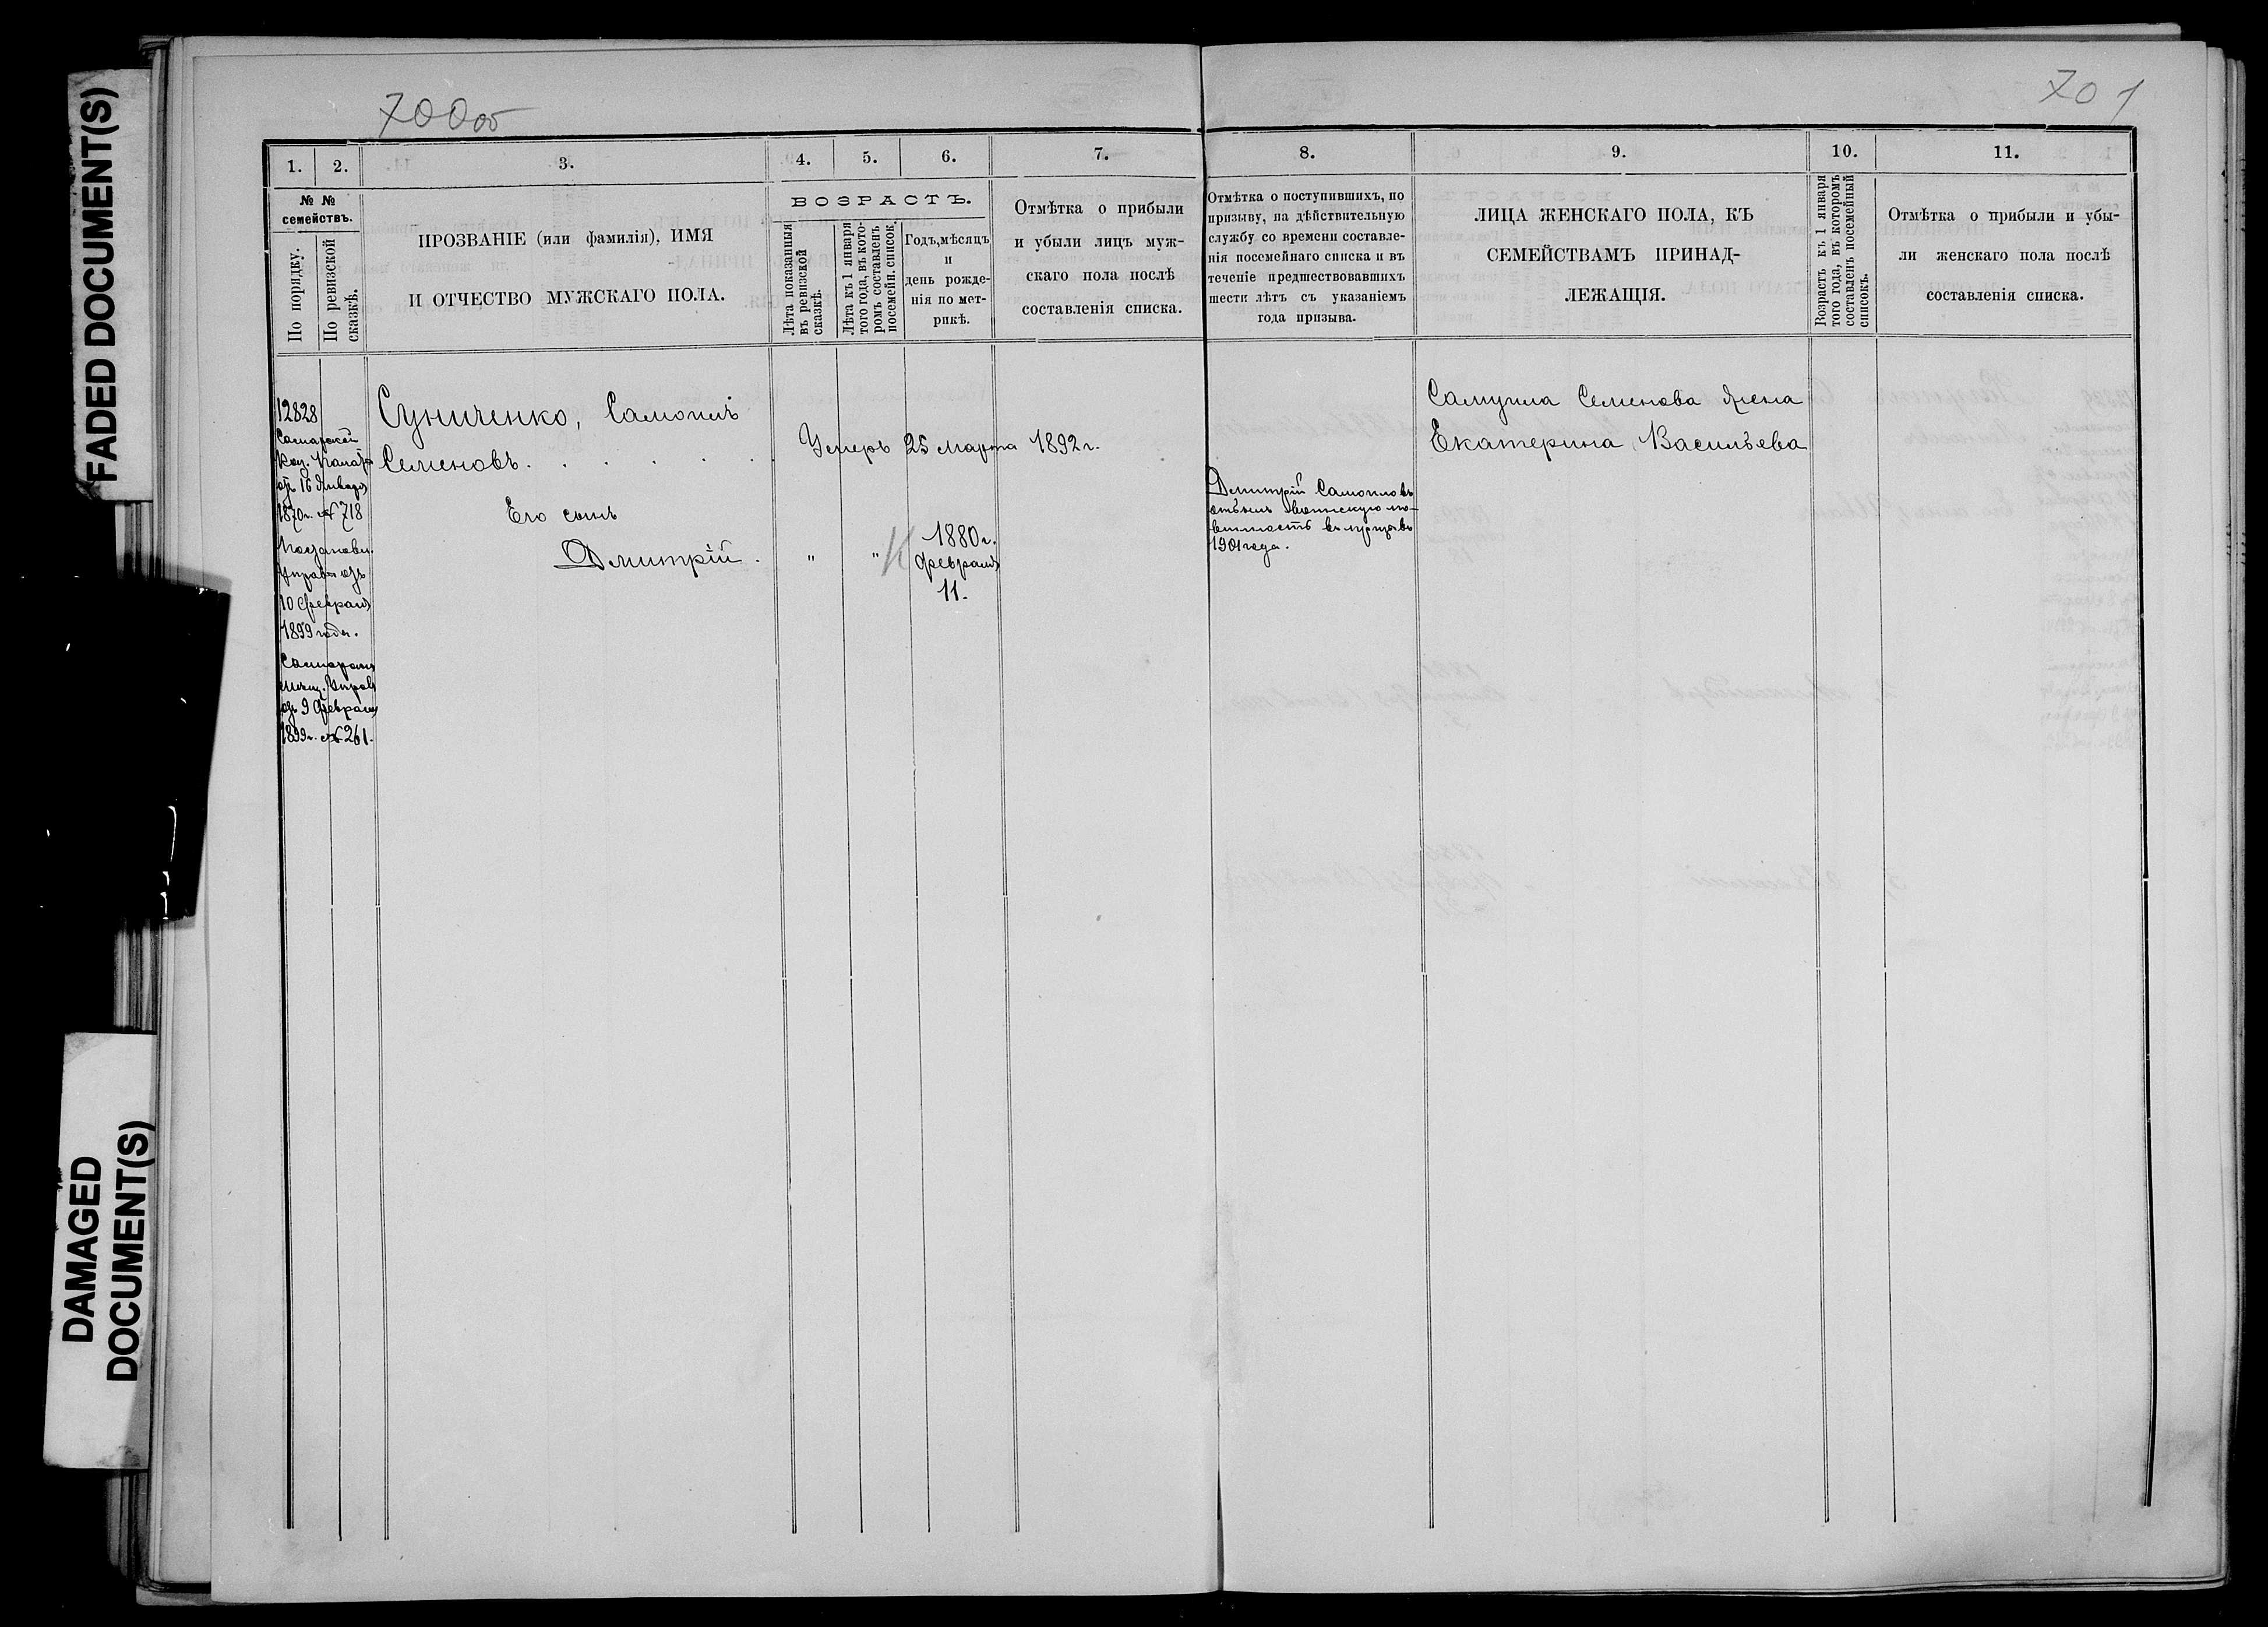 FADED DOCUMENT(S)
DAMAGED
DOCUMENT(S)
700 об
701
1. 2. 3. 4. 5. 6. 7. 8. 9. 10. 11.
№ №
семействъ.
По порядку.
По ревизской
сказкѣ.
ПРОЗВАНІЕ (или фамилія), ИМЯ
И ОТЧЕСТВО МУЖСКАГО ПОЛА.
ВОЗРАСТЪ.
Лѣта показанныя
въ ревизской
сказкѣ.
Лѣта къ 1 января
того года, въ кото-
ромъ составленъ
посемейн. список.
Годъ, мѣсяцъ
и
день рожде-
нія по мет-
рикѣ.
Отмѣтка о прибыли
и убыли лицъ муж-
скаго пола послѣ
составленія списка.
Отмѣтка о поступившихъ, по
призыву, на дѣйствительную
службу со времени составле-
нія посемейнаго списка и въ
теченіе предшествовавшихъ
шести лѣтъ съ указаніемъ
года призыва.
ЛИЦА ЖЕНСКАГО ПОЛА, КЪ
СЕМЕЙСТВАМЪ ПРИНАД-
ЛЕЖАЩІЯ.
Возрастъ къ 1 января
того года, въ которомъ
составленъ посемейный
списокъ.
Отмѣтка о прибыли и убы-
ли женскаго пола послѣ
составленія списка.
12828
Самарской
Каз. Палаты
отъ 16 Января
1870 г. № 718
Постановл.
Управы отъ
10 Февраля
1899 года.
Самарской
Мѣщ. Управ
отъ 9 Февраля
1899 г. № 261.
Суниченко, Самоилъ
Семеновъ. . . . . .
Умеръ 25 Марта 1892 г.
Его сынъ
Дмитрій . " "
1880 г.
Февраля
11.
Дмитрій Самоиловъ
отбылъ воинскую по-
винность въ призывъ
1901 года.
Самуила Семенова жена
Екатерина Васильева